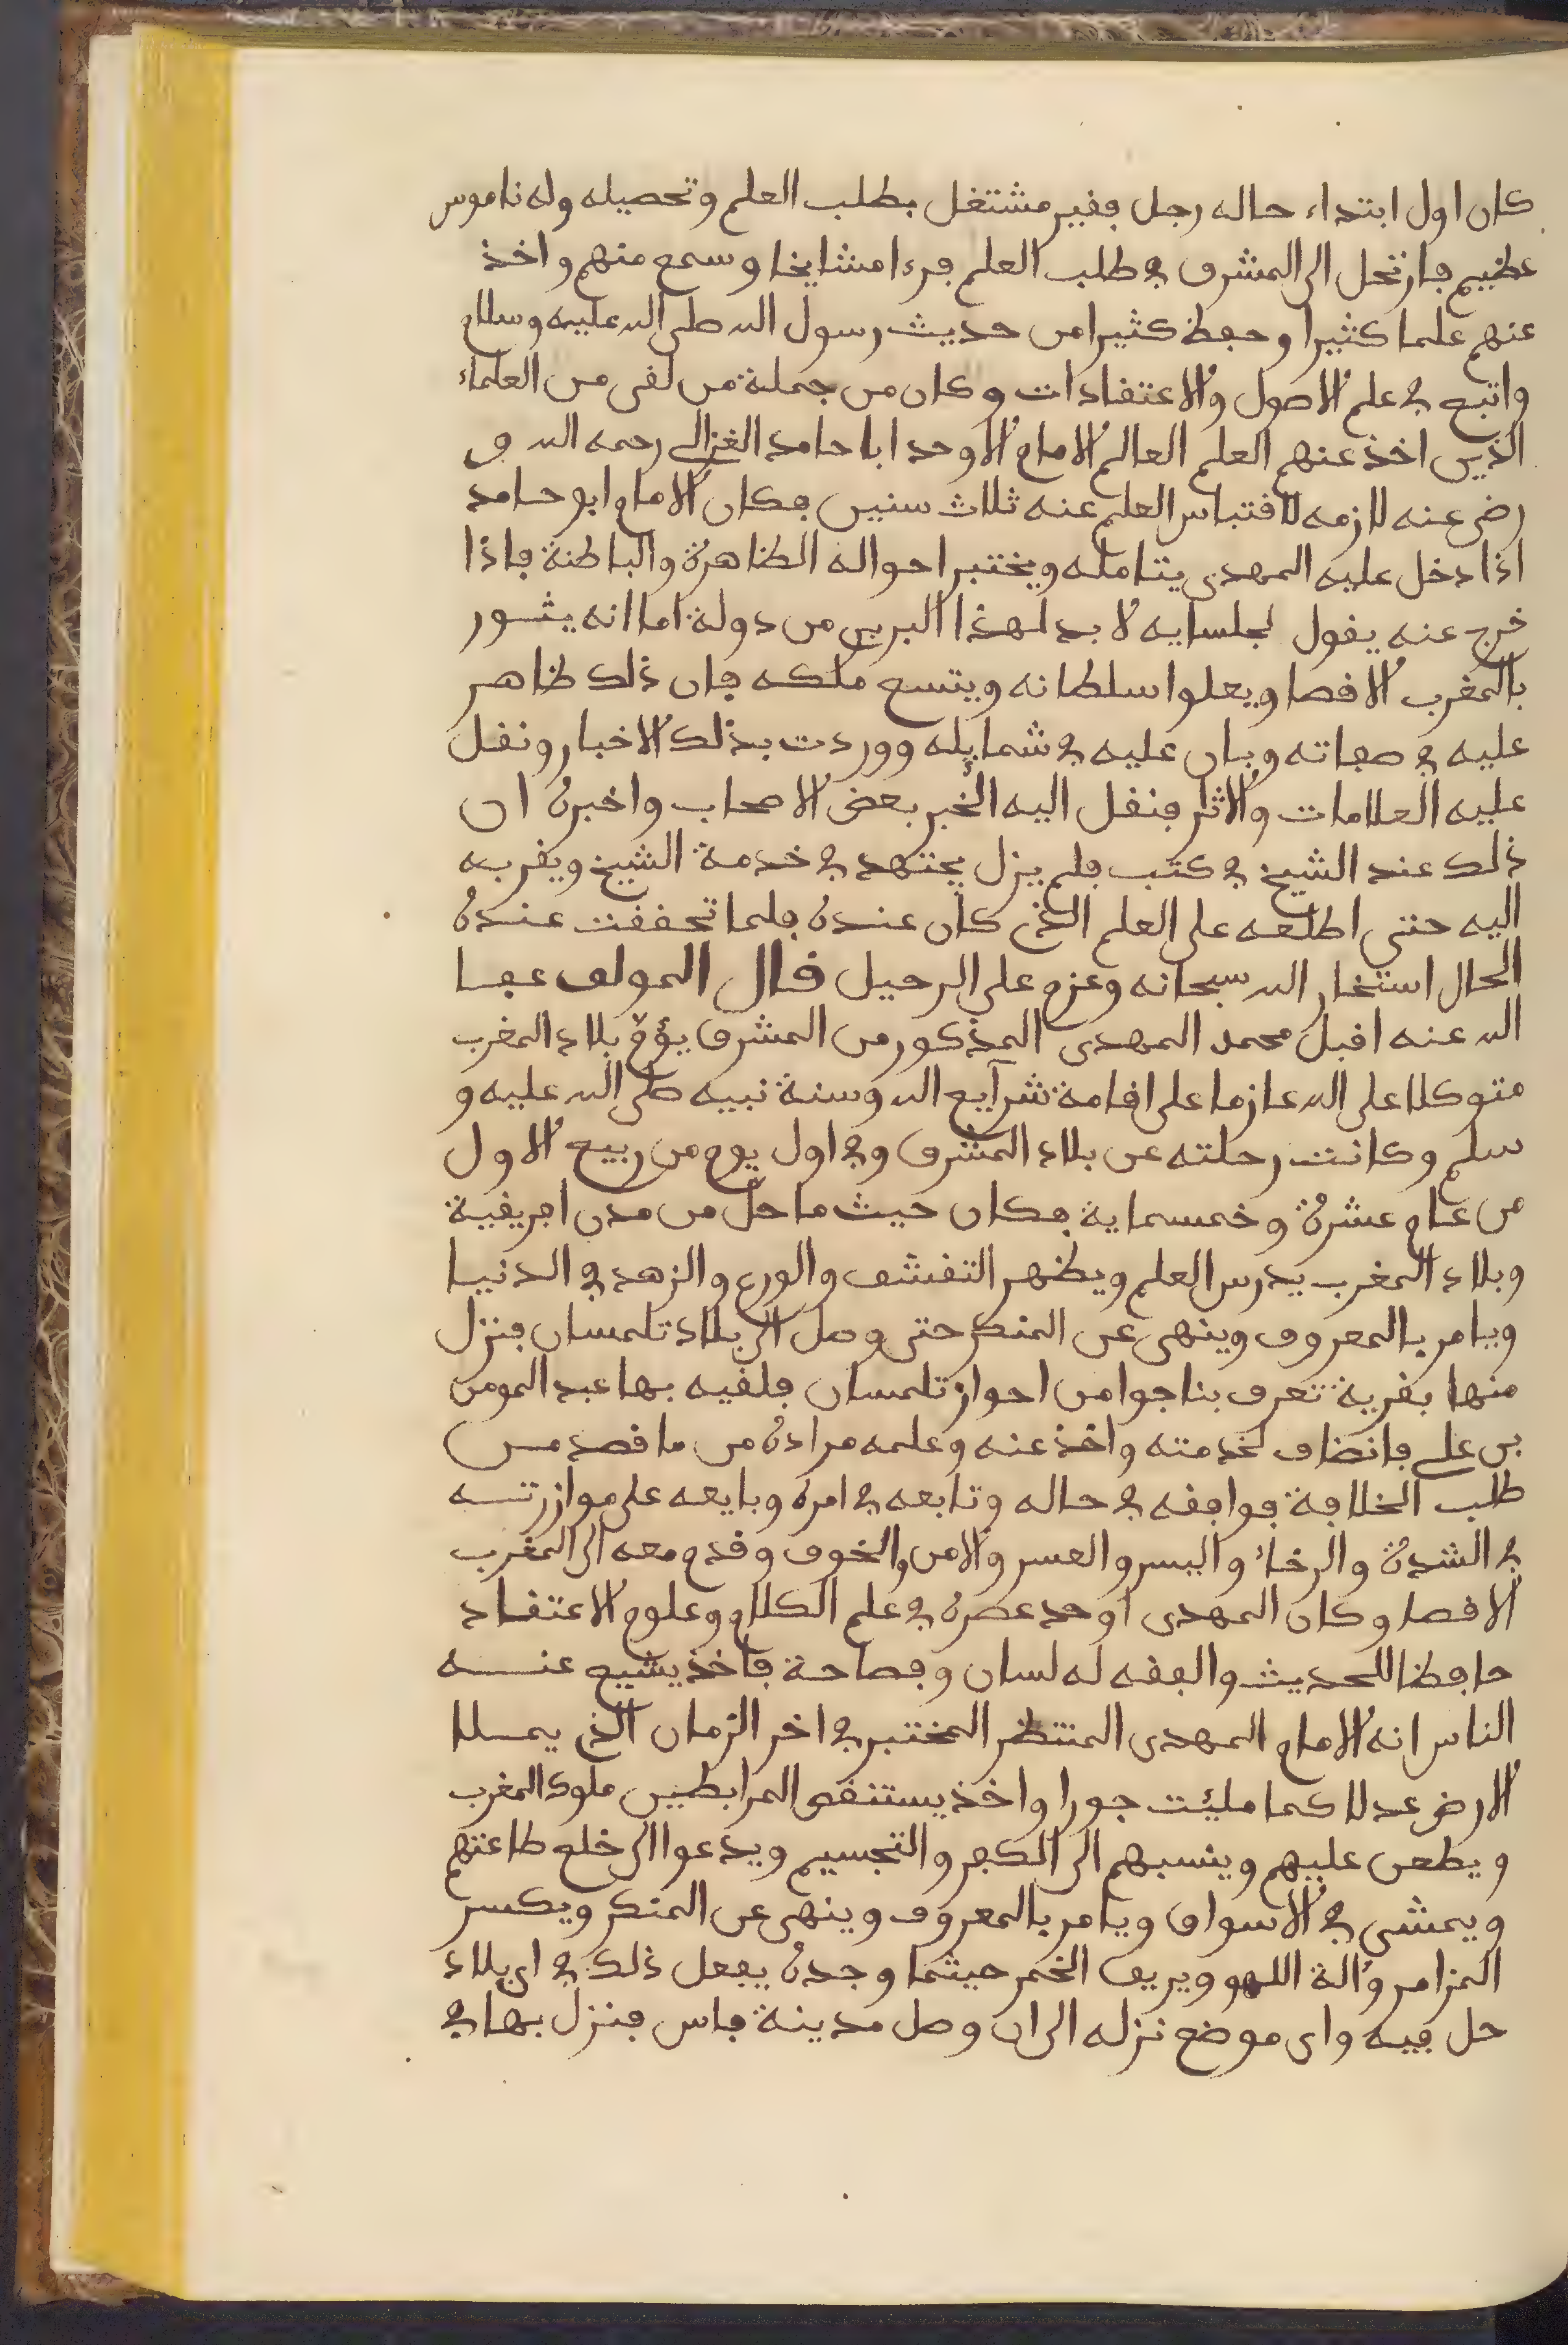 كان اول ابتداء حاله رجل فقير مشتغل بطلب العلم وتحصيله وله ناموس
عظيم فارتحل الى المشرق في طلب العلم فرءا مشايخا وسمع منهم واخذ
عنهم علما كثيرا وحفظ كثيرا من حديث رسول الله صلى الله عليه وسلام
واتبع في علم الاصول والاعتقادات وكان من جملة من لقى من العلماء
الذين اخذ عنهم العلم العالم الامام الاوحد ابا حامد الغزالي رحمه الله و
رضى عنه لازمه لاقتباس العلم عنه ثلاث سنين فكان الامام ابو حامد
اذا دخل عليه المهدى يتامله ويختبر احواله الظاهرة والباطنة فاذا
خرج عنه يقول لجلسايه لا بد لهذا البربري من دولة اما انه يثور
بالمغرب الاقصا ويعلوا سلطانه ويتسع ملكه فان ذلك ظاهر
عليه في صفاته وبان عليه في شمايله ووردت بذلك الاخبار ونقل
عليه العلامات والاثار فنقل اليه الخبر بعض الاصحاب واخبره ان
ذلك عند الشيخ في كتب فلم يزل يجتهد في خدمة الشيخ ويقربه
اليه حتى اطلعه على العلم الذي كان عنده فلما تحققت عنده
الحال استخار الله سبحانه وعزم على الرحيل قال المولف عفا
الله عنه اقبل محمد المهدى المذكور من المشرق يؤم بلاد المغرب
متوكلا على الله عازما على اقامة شرآيع الله وسنة نبيه صلى الله عليه و
سلم وكانت رحلته عن بلاد المشرق في اول يوم من ربيع الاول
من عام عشرة وخمسماية فكان حيث ما حل من مدن افريقية
وبلاد المغرب يدرس العلم ويظهر التقشف والورع والزهد في الدنيا
ويامر بالمعروف وينهى عن المنكر حتى وصل الى بلاد تلمسان فنزل
منها بقرية تعرف بتاجوا من احواز تلمسان فلقيه بها عبد المومن
بن علي فانضاف لخدمته واخذ عنه وعلمه مراده من ما قصد من
طلب الخلافة فوافقه في حاله وتابعه في امره وبايعه على موازرته
في الشدة والرخاء واليسر والعسر والامن والخوف وقدم معه الى المغرب
الاقصا وكان المهدى اوحد عصره في علم الكلام وعلوم الاعتقاد
حافظا للحديث والفقه له لسان وفصاحة فاخذ يشيع عنه
الناس انه الامام المهدى المنتظر المختبر في اخر الزمان الذي يملا
الارض عدلا كما مليئت جورا واخذ يستنقص المرابطين ملوك المغرب
ويطعن عليهم وينسبهم الى الكفر والتجسيم ويدعوا الى خلع طاعتهم
ويمشي في الاسواق ويامر بالمعروف وينهى عن المنكر ويكسر
المزامر وءالة اللهو ويريف الخمر حيثما وجده يفعل ذلك في اي بلاد
حل فيه واى موضع نزله الى ان وصل مدينة فاس فنزل بها في